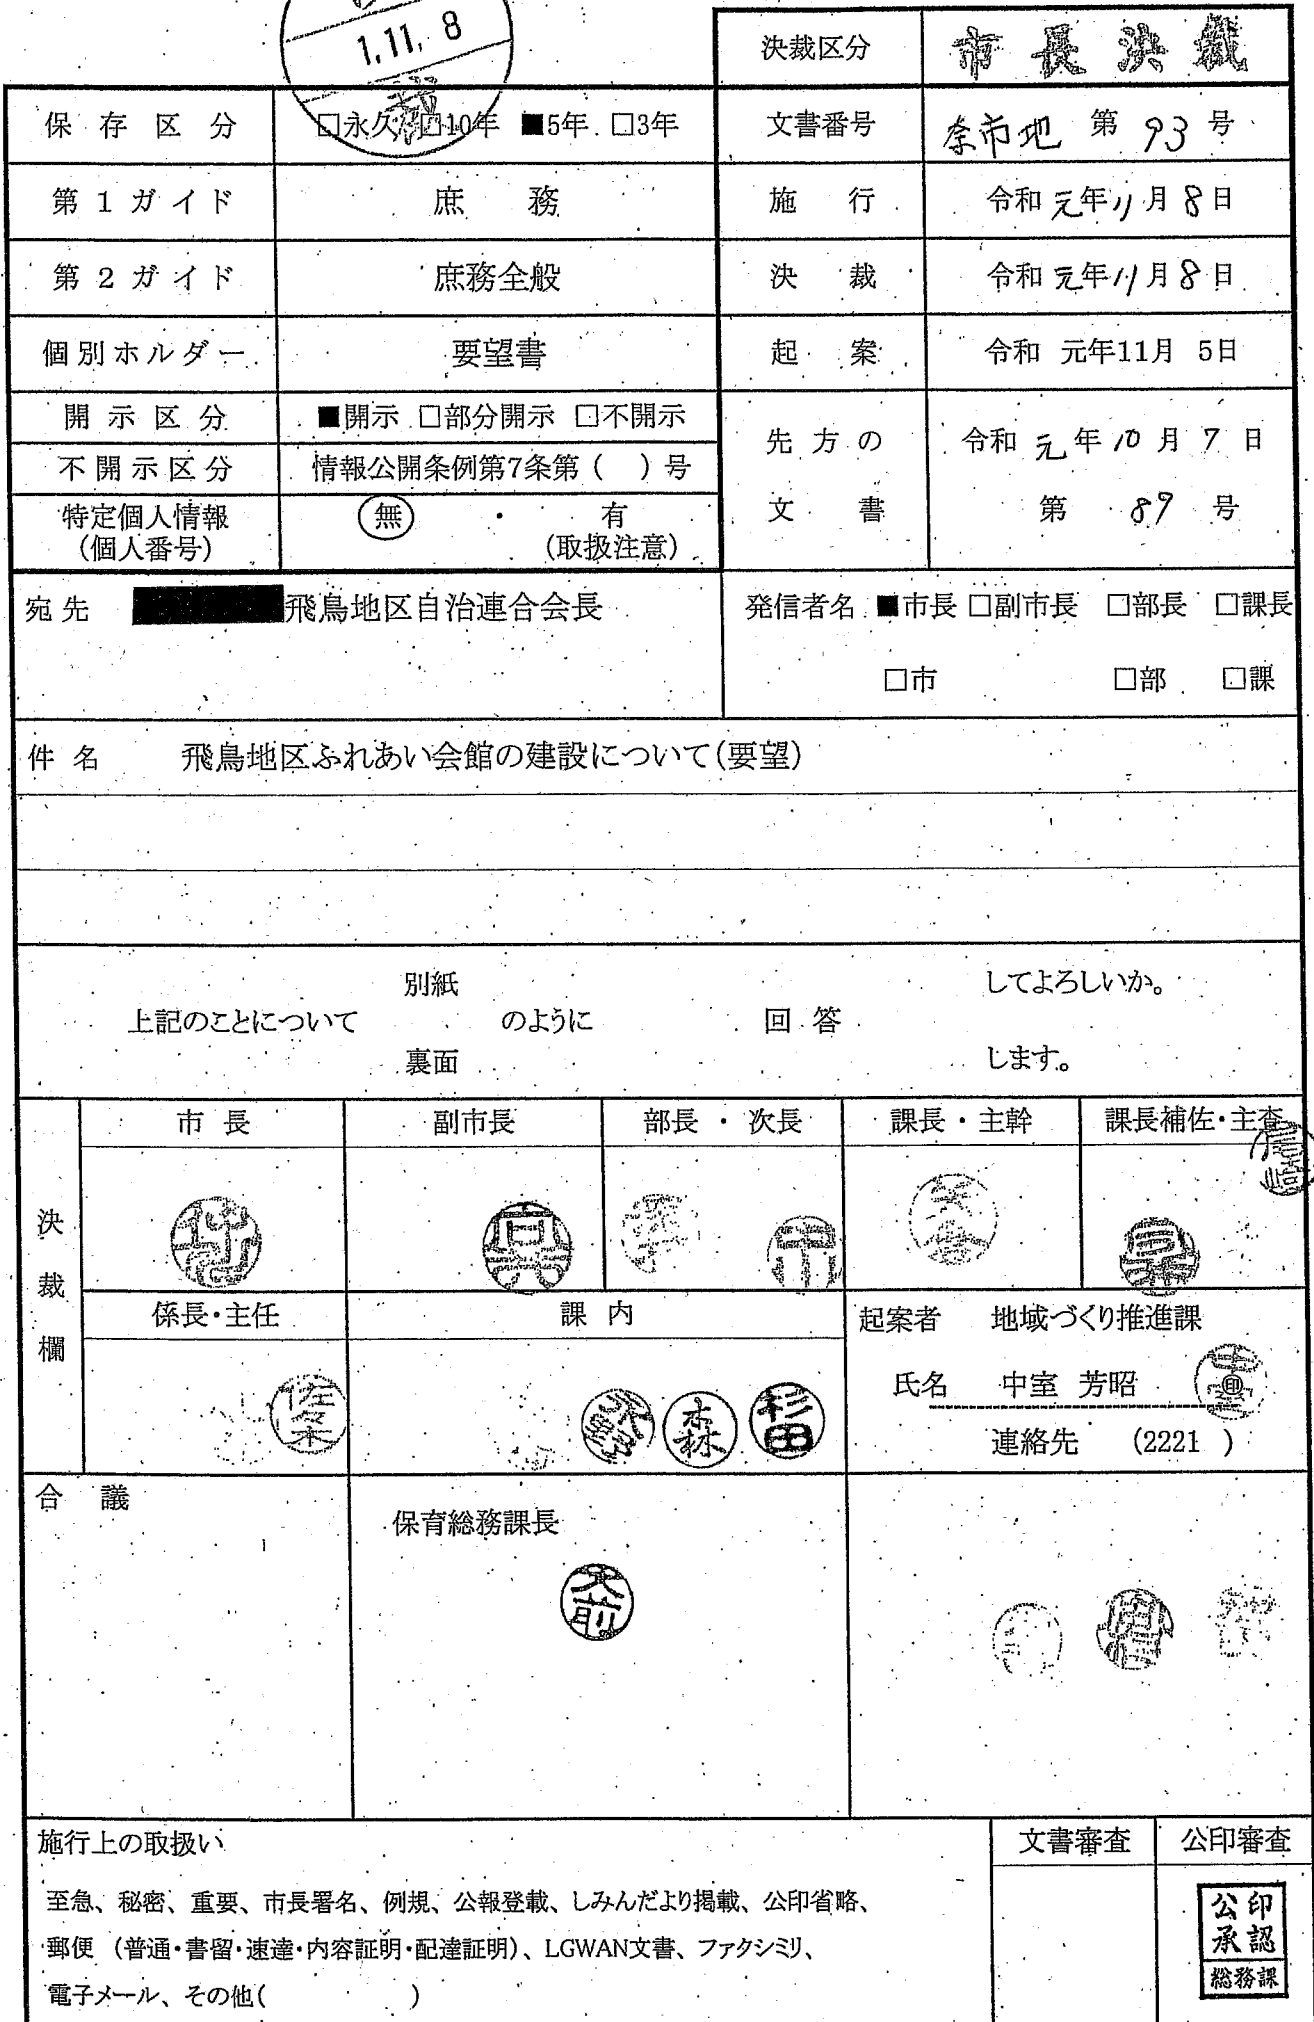 1.11.8
裁
決裁区分 市長決裁
保存区分 □永久 □10年 ■5年 □3年 文書番号 奈市地 第 93 号
第1ガイド 庶務 施行 令和 元年 11月 8日
第2ガイド 庶務全般 決裁 令和 元年 11月 8日
個別ホルダー 要望書 起案 令和 元年11月 5日
開示区分 ■開示 □部分開示 □不開示
不開示区分 情報公開条例第7条第( )号
先方の文書 令和 元年 10月 7日
第 89 号
特定個人情報 無 ・ 有
(個人番号) (取扱注意)
宛先 飛鳥地区自治連合会長 発信者名 ■市長 □副市長 □部長 □課長
□市 □部 □課
件名 飛鳥地区ふれあい会館の建設について(要望)
別紙 してよろしいか。
上記のことについて のように 回答
裏面 します。
決裁欄
市長 副市長 部長・次長 課長・主幹 課長補佐・主査
係長・主任 課内 起案者 地域づくり推進課
佐々木 森 杉田
氏名 中室 芳昭 ㊞
連絡先 (2221 )
合議 保育総務課長
大前
施行上の取扱い 文書審査 公印審査
至急、秘密、重要、市長署名、例規、公報登載、しみんだより掲載、公印省略、
郵便(普通・書留・速達・内容証明・配達証明)、LGWAN文書、ファクシミリ、
電子メール、その他( )
公印
承認
総務課